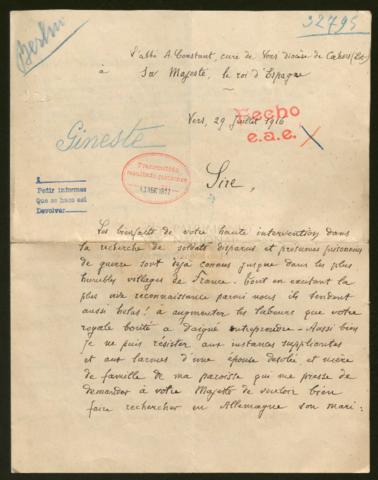 Berlin
32795
L'abbé A. Constant, curé de Vers diocèse de Cahors (Lot)
à Sa Majesté, le roi d'Espagne
Vers, 29 Juillet 1916
Hecho
e.a.e.
Gineste
Transmitido
resultado gestiones
1917
A
Pedir informes
Que se haca así
Devolver
Sire,
Les bienfaits de votre haute intervention dans
la recherche de soldats disparus et présumés prisonniers
de guerre sont déjà connus jusque dans les plus
humbles villages de France. Tout en excitant la
plus vive reconnaissance parmi nous ils tendent
aussi hélas ! à augmenter les labeurs que votre
royale bonté a daigné entreprendre - Aussi bien
je ne puis résister aux instances suppliantes
et aux larmes d'une épouse désolée et mère
de famille de ma paroisse qui me presse de
demander à votre Majesté de vouloir bien
faire rechercher en Allemagne son mari :